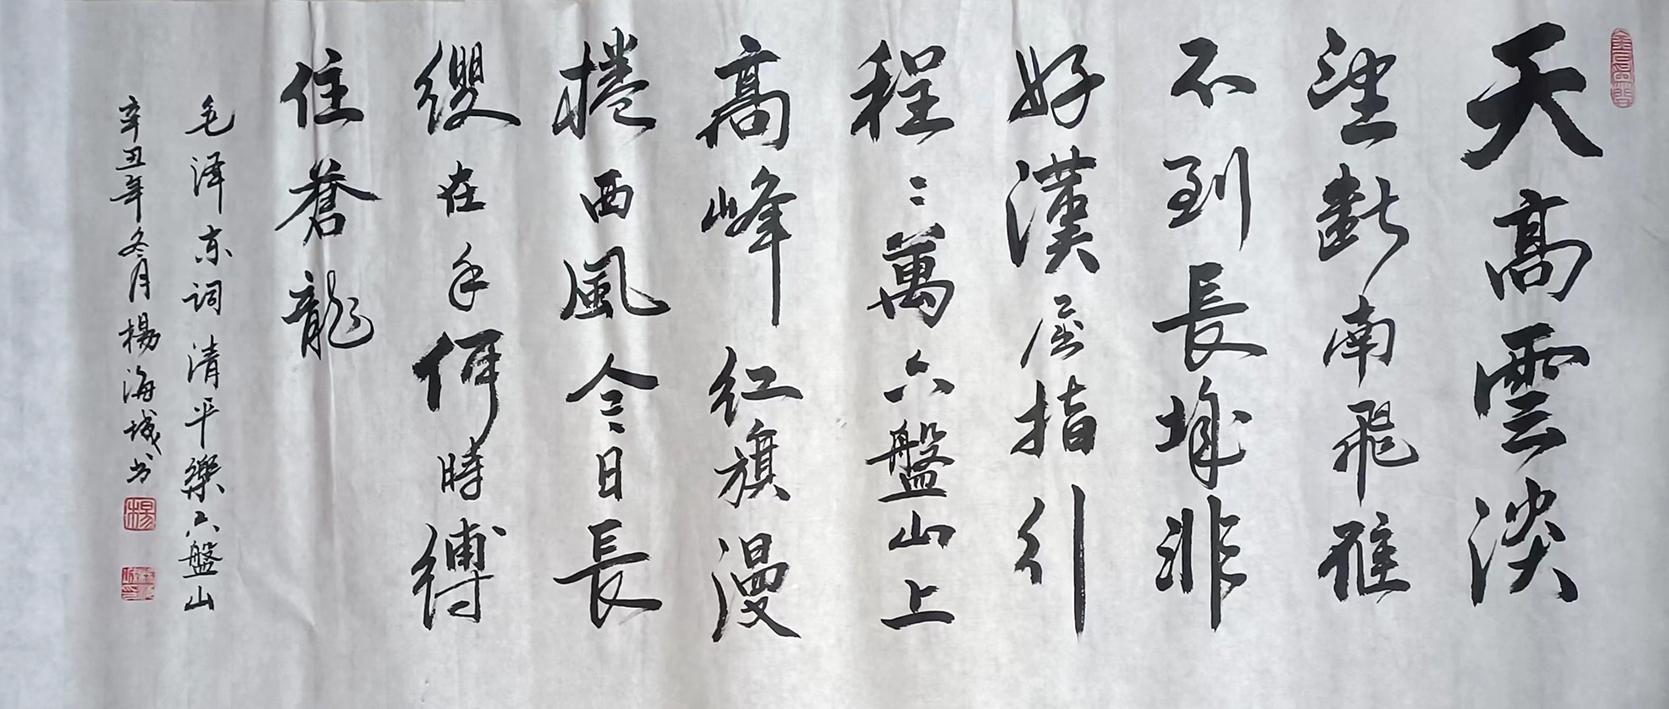 天高雲淡
望斷南飛雁
不到長城非
好漢屈指行
程二萬六盤山上
高峰红旗漫
捲西風今日長
纓在手何時縛
住蒼龍
毛泽东词清平樂六盤山
辛丑年冬月楊海城书